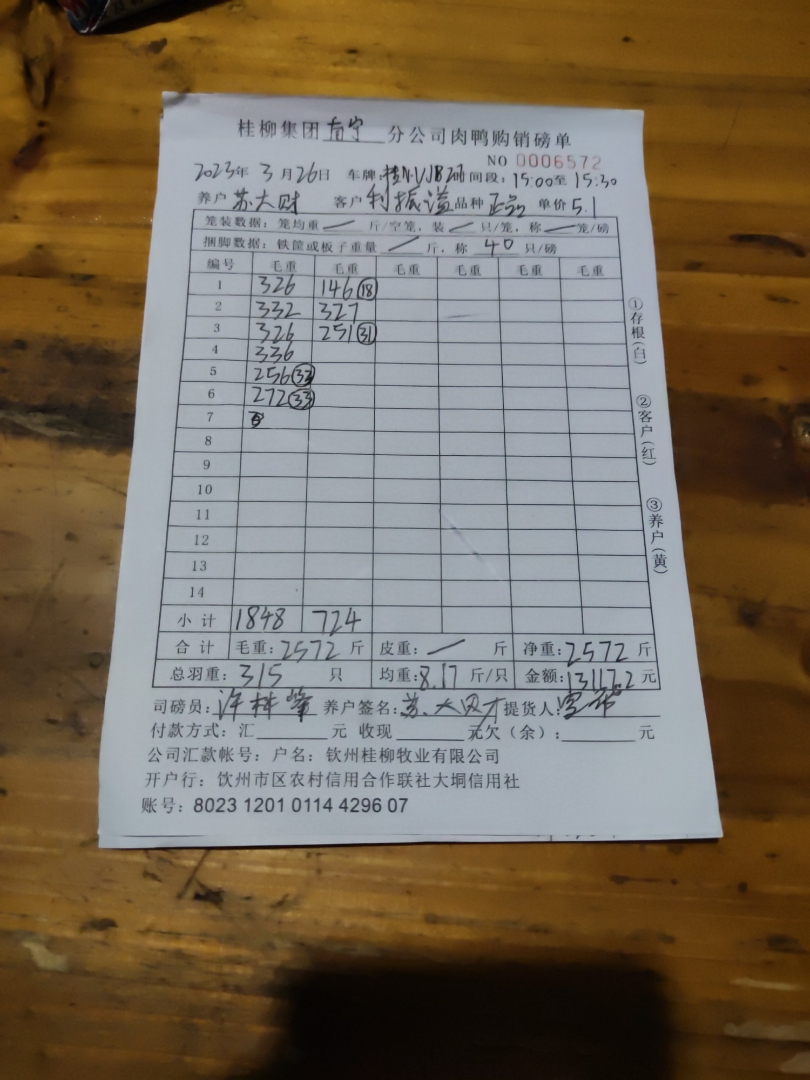 桂柳集团南宁分公司肉鸭购销磅单
NO 0006572
2023年3月26日 车牌: 时间段: 15:00至15:30
养户 苏大财 客户 利振溢 品种 单价 5.1
笼装数据: 笼均重 / 斤/空笼, 装 / 只/笼, 称 / 笼/磅
捆脚数据: 铁筐或板子重量 / 斤, 称 40 只/磅
编号 毛重 毛重 毛重 毛重 毛重 毛重
1 326 146 ⑱
2 332 327
3 326 251 ㉛
4 336
5 256 ㉝
6 272 ㉝
7
8
9
10
11
12
13
14
小计 1848 724
合计 毛重: 2572 斤 皮重: / 斤 净重: 2572 斤
总羽重: 315 只 均重: 8.17 斤/只 金额: 13117.2 元
司磅员: 养户签名: 苏大财 提货人:
付款方式: 汇______元 收现______元 欠(余): ______元
公司汇款帐号: 户名: 钦州桂柳牧业有限公司
开户行: 钦州市区农村信用合作联社大垌信用社
账号: 8023 1201 0114 4296 07
①存根(白)
②客户(红)
③养户(黄)